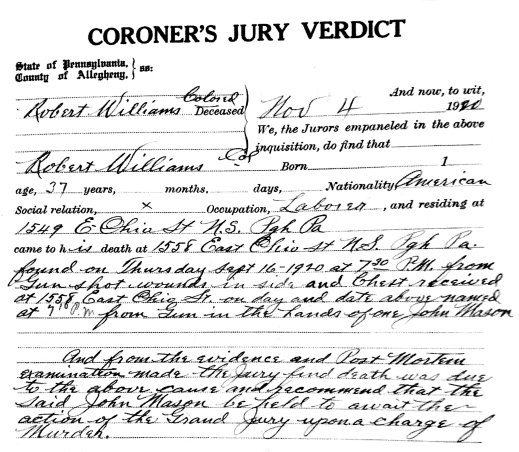 CORONER'S JURY VERDICT
State of Pennsylvania,
County of Allegheny, } ss:
Robert Williams Colored Deceased
And now, to wit,
Nov 4 1920
We, the Jurors empaneled in the above
inquisition, do find that
Robert Williams Col Born 1
age, 37 years, months. days, Nationality American
Social relation, x Occupation, Laborer, and residing at
1549 E Ohio St N.S. Pgh Pa
came to his death at 1558 East Ohio St N.S. Pgh Pa.
found on Thursday Sept 16-1920 at 7 30 P.M. from
Gun shot wounds in side and Chest received
at 1558 East Ohio St. on day and date above named
at P.M from Gun in the hands of one John Mason
And from the evidence and Post Mortem
examination made the Jury find death was due
to the above cause and recommend that the
said John Mason be held to await the
action of the Grand Jury upon a charge of
Murder.